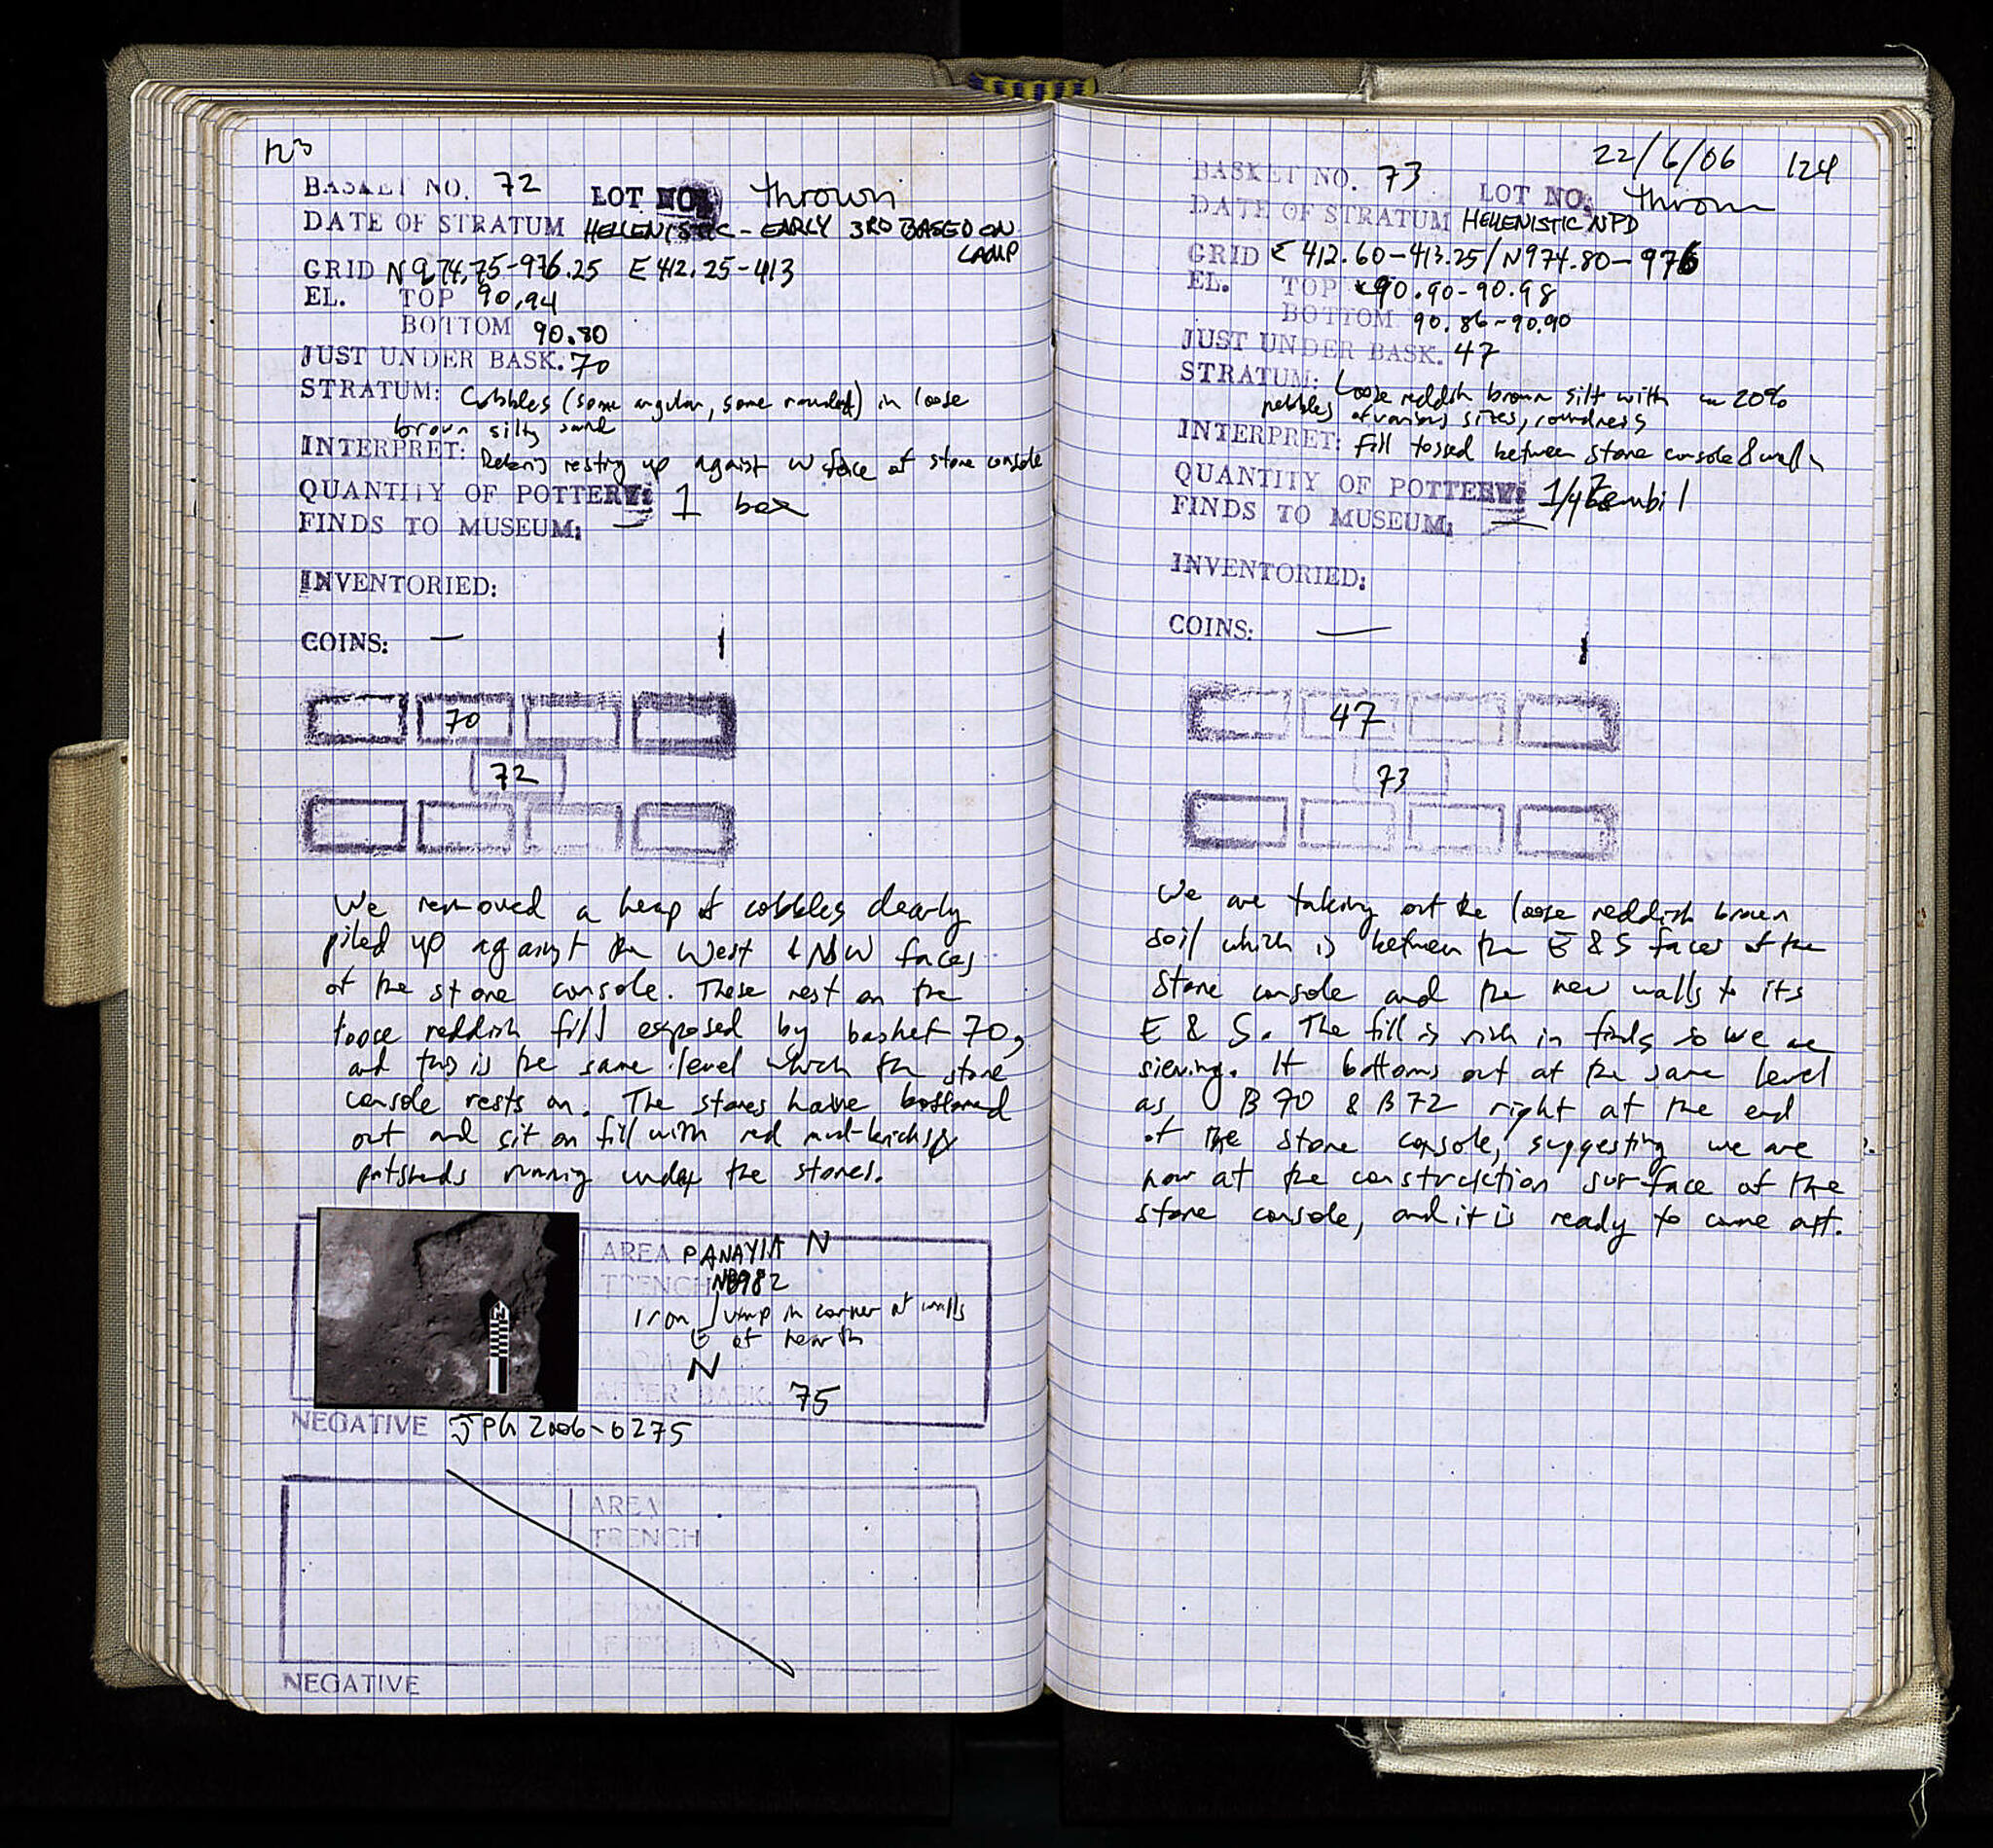 123
BASKET NO. 72 LOT NO. thrown
DATE OF STRATUM HELLENISTIC - EARLY 3RD BASED ON
LAMP
GRID N974.75-976.25 E 412.25-413
EL. TOP 90.94
BOTTOM 90.80
JUST UNDER BASK. 70
STRATUM: Cobbles (some angular, some rounded) in loose
brown silty sand
INTERPRET: Debris resting up against W face of stone console
QUANTITY OF POTTERY: 1 box
FINDS TO MUSEUM: —
INVENTORIED:
COINS: —
70
72
We removed a heap of cobbles clearly
piled up against the West & NW faces
of the stone console. These rest on the
loose reddish fill exposed by basket 70,
and this is the same level which the stone
console rests on. The stones have bottomed
out and sit on fill with red mud-bricks &
potsherds running under the stones.
AREA PANAYIA N
TRENCH NB982
Iron lump in corner of walls
E of hearth
FROM N
AFTER BASK. 75
NEGATIVE JPG 2006-0275
AREA
TRENCH
FROM
AFTER BASK.
NEGATIVE
22/6/06 124
BASKET NO. 73 LOT NO. thrown
DATE OF STRATUM HELLENISTIC NPD
GRID E 412.60-413.25/N974.80-976
EL. TOP 90.90-90.98
BOTTOM 90.86-90.90
JUST UNDER BASK. 47
STRATUM: Loose reddish brown silt with 20%
pebbles of various sizes, roundness
INTERPRET: Fill tossed between stone console & walls
QUANTITY OF POTTERY: 1/4 zembil
FINDS TO MUSEUM: —
INVENTORIED:
COINS: —
47
73
We are taking out the loose reddish brown
soil which is between the E & S faces of the
stone console and the new walls to its
E & S. The fill is rich in finds so we are
sieving. It bottoms out at the same level
as B 70 & B 72 right at the end
of the stone console, suggesting we are
now at the construction surface of the
stone console, and it is ready to come off.